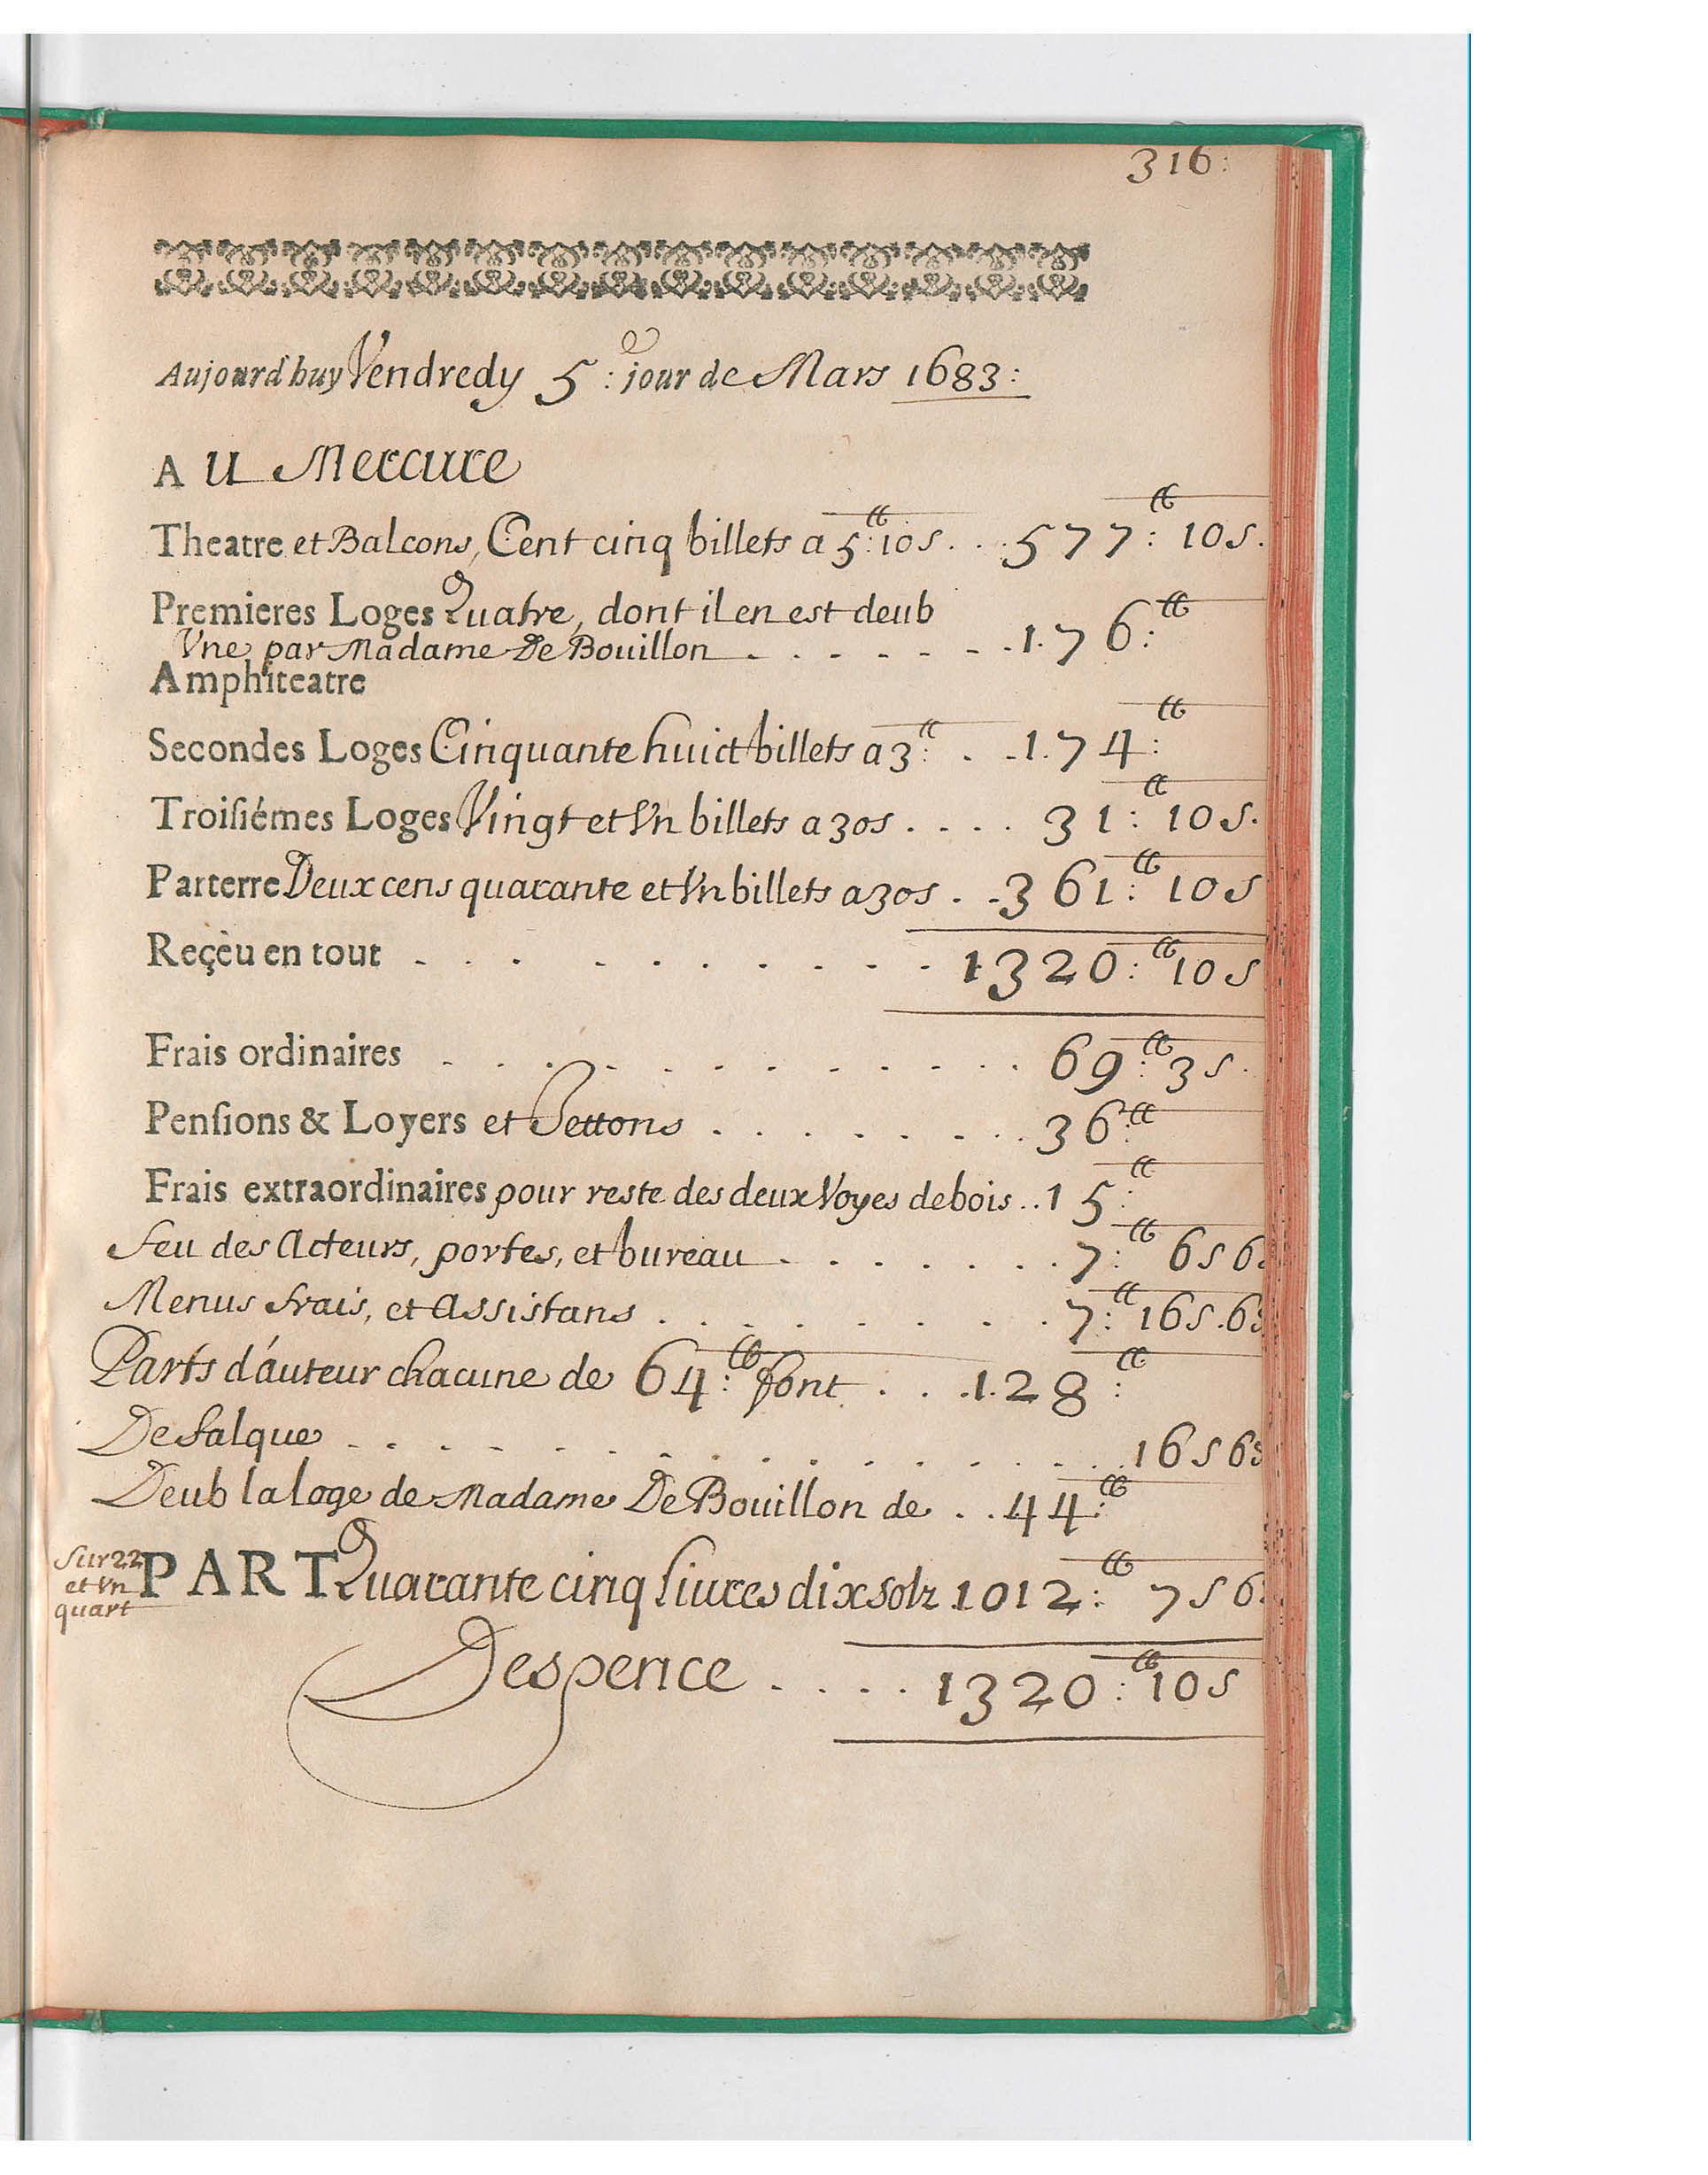 316:
Aujourd'huy Vendredy 5:e jour de Mars 1683:
AU Mercure
Theatre et Balcons, Cent cinq billets a 5:₶ 10s. . . 577:₶ 10s.
Premieres Loges Quatre, dont il en est deub
Vne par Madame De Bouillon . . . . . . . 176:₶
Amphiteatre
Secondes Loges Cinquante huict billets a 3:₶ . . 174:₶
Troisiémes Loges Vingt et Vn billets a 30s . . . . 31:₶ 10s.
Parterre Deux cens quarante et Vn billets a 30s . . 361:₶ 10s
Reçeu en tout . . . . . . . . . . 1320:₶ 10s
Frais ordinaires . . . . . . . . . . . 69:₶ 3s.
Pensions & Loyers et Jettons . . . . . . . 36:₶
Frais extraordinaires pour reste des deux Voyes de bois . . 15:₶
Feu des Acteurs, portes, et bureau . . . . . . 7:₶ 6s 6
Menus frais, et Assistans . . . . . . . . 7:₶ 16s. 6
Parts d'auteur chacune de 64:₶ font . . . 128:₶
Defalque . . . . . . . . . . . . . . 16s 6
Deub la loge de Madame De Bouillon de . . 44:₶
Sur 22
et Vn
quart
PART Quarante cinq liures dix solz 1012:₶ 7s 6
Despence . . . . 1320:₶ 10s